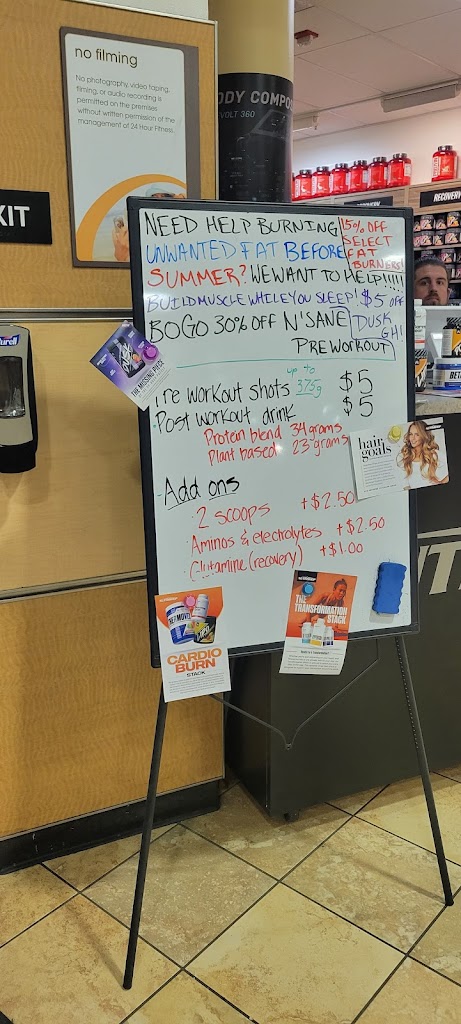 no filming
No photography, video taping,
filming, or audio recording is
permitted on the premises
without written permission of the
management of 24 Hour Fitness.
XIT
ODY COMPO
VOLT 360
RECOVERY
NEED HELP BURNING
UNWANTED FAT BEFORE
SUMMER? WE WANT TO HELP!!!!!
15% OFF
SELECT
FAT
BURNERS!
BUILD MUSCLE WHILE YOU SLEEP! $5 OFF
DUSK
GH!
BOGO 30% OFF N'SANE
PREWORKOUT
up to
Pre workout shots 375g $5
Post workout drink $5
Protein blend 34 grams
Plant based 23 grams
Add ons
2 scoops +$2.50
Aminos & electrolytes +$2.50
Glutamine (recovery) +$1.00
THE MISSING PIECE
hair
goals
THE
TRANSFORMATION
STACK
CARDIO
BURN
STACK
BETA